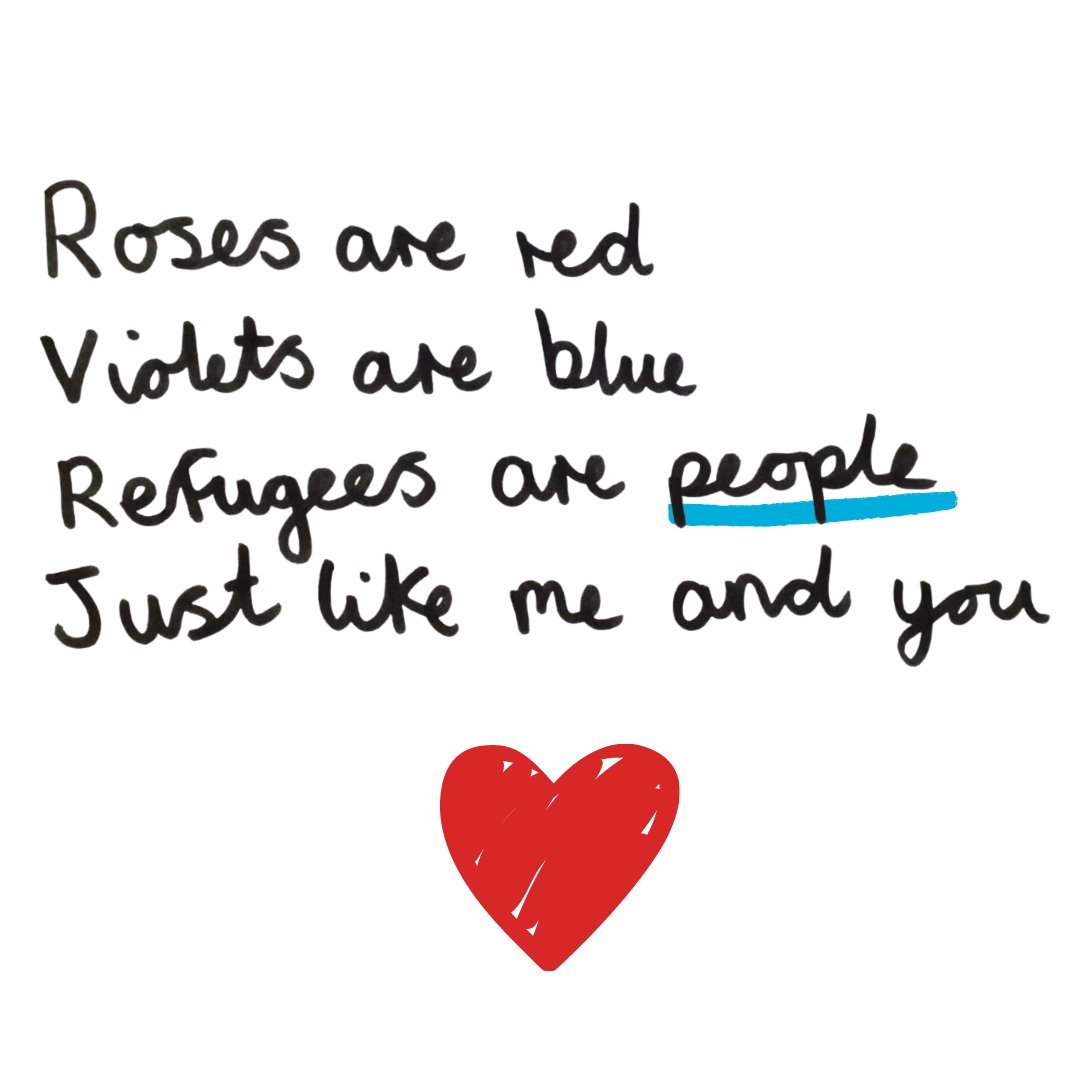 Roses are red
Violets are blue
Refugees are people
Just like me and you